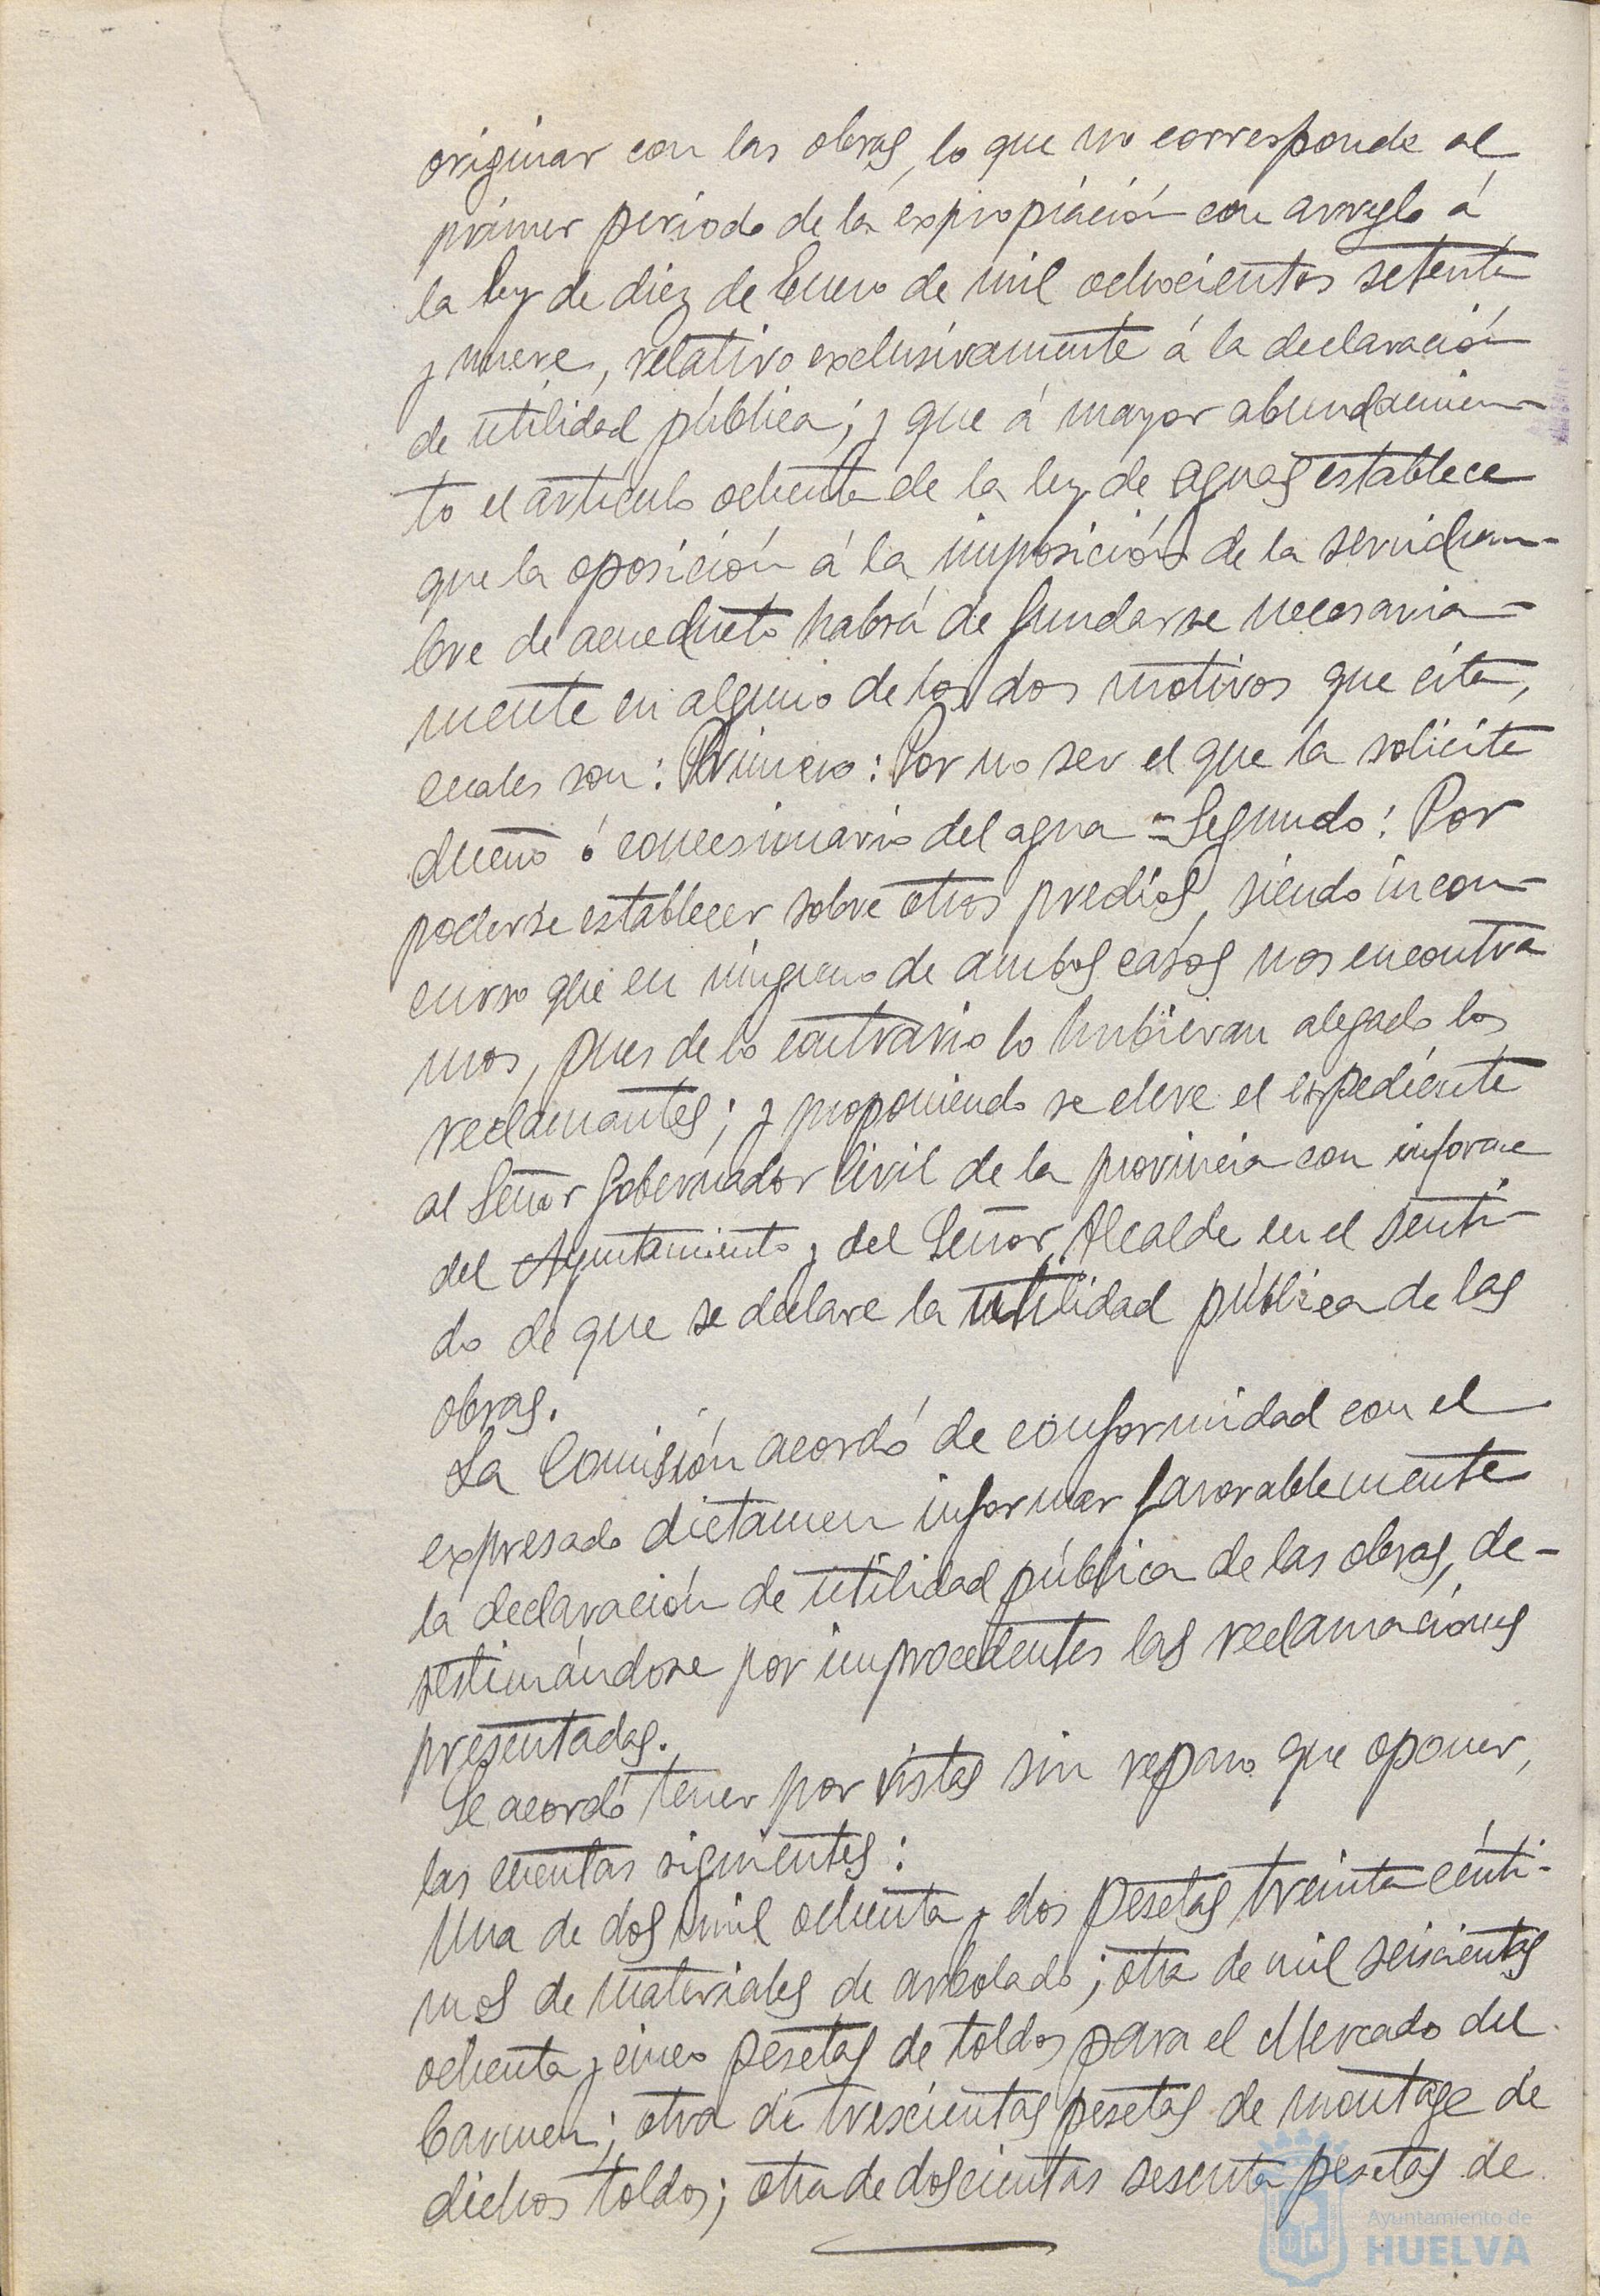 originar con las obras, lo que no corresponde al
primer periodo de la expropiación con arreglo á
la ley de diez de Enero de mil ochocientos setenta
y nueve, relativo exclusivamente á la declaración
de utilidad pública; y que á mayor abundamien-
to el artículo ochenta de la ley de aguas establece
que la oposición á la imposición de la servidum-
bre de acueducto habrá de fundarse necesaria-
mente en alguno de los dos motivos que cita,
cuales son: Primero: Por no ser el que la solicite
dueño ó concesionario del agua = Segundo: Por
poderse establecer sobre otros predios, siendo incon-
curso que en ninguno de ambos casos nos encontra
mos, pues de lo contrario lo hubieran alegado los
reclamantes; y proponiendo se eleve el expediente
al Señor Gobernador Civil de la provincia con informe
del Ayuntamiento y del Señor Alcalde en el senti-
do de que se declare la utilidad pública de las
obras.
La Comisión acordó de conformidad con el
expresado dictamen informar favorablemente
la declaración de utilidad pública de las obras, de-
sestimándose por improcedentes las reclamaciónes
presentadas.
Se acordó tener por vistas sin reparo que oponer,
las cuentas siguientes:
Una de dos mil ochenta y dos pesetas treinta cénti-
mos de materiales de arbolado; otra de mil seiscientas
ochenta y cinco pesetas de toldos para el Mercado del
Carmen; otra de trescientas pesetas de montage de
dichos toldos; otra de doscientas sesenta pesetas de
Ayuntamiento de
HUELVA